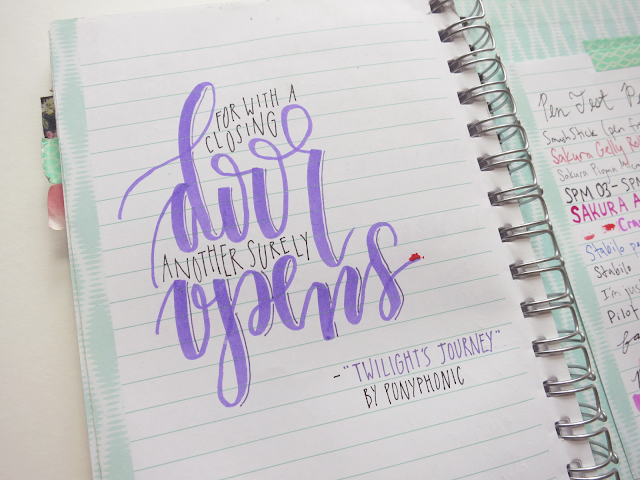 FOR WITH A
CLOSING
door
ANOTHER SURELY
opens
-"TWILIGHT'S JOURNEY"
BY PONYPHONIC
Pen Test
SmashStick (pen
Sakura Gelly
Sakura Pigma
SPM 03-SPM
SAKURA
Stabilo
Stabilo
I'm
Pilot